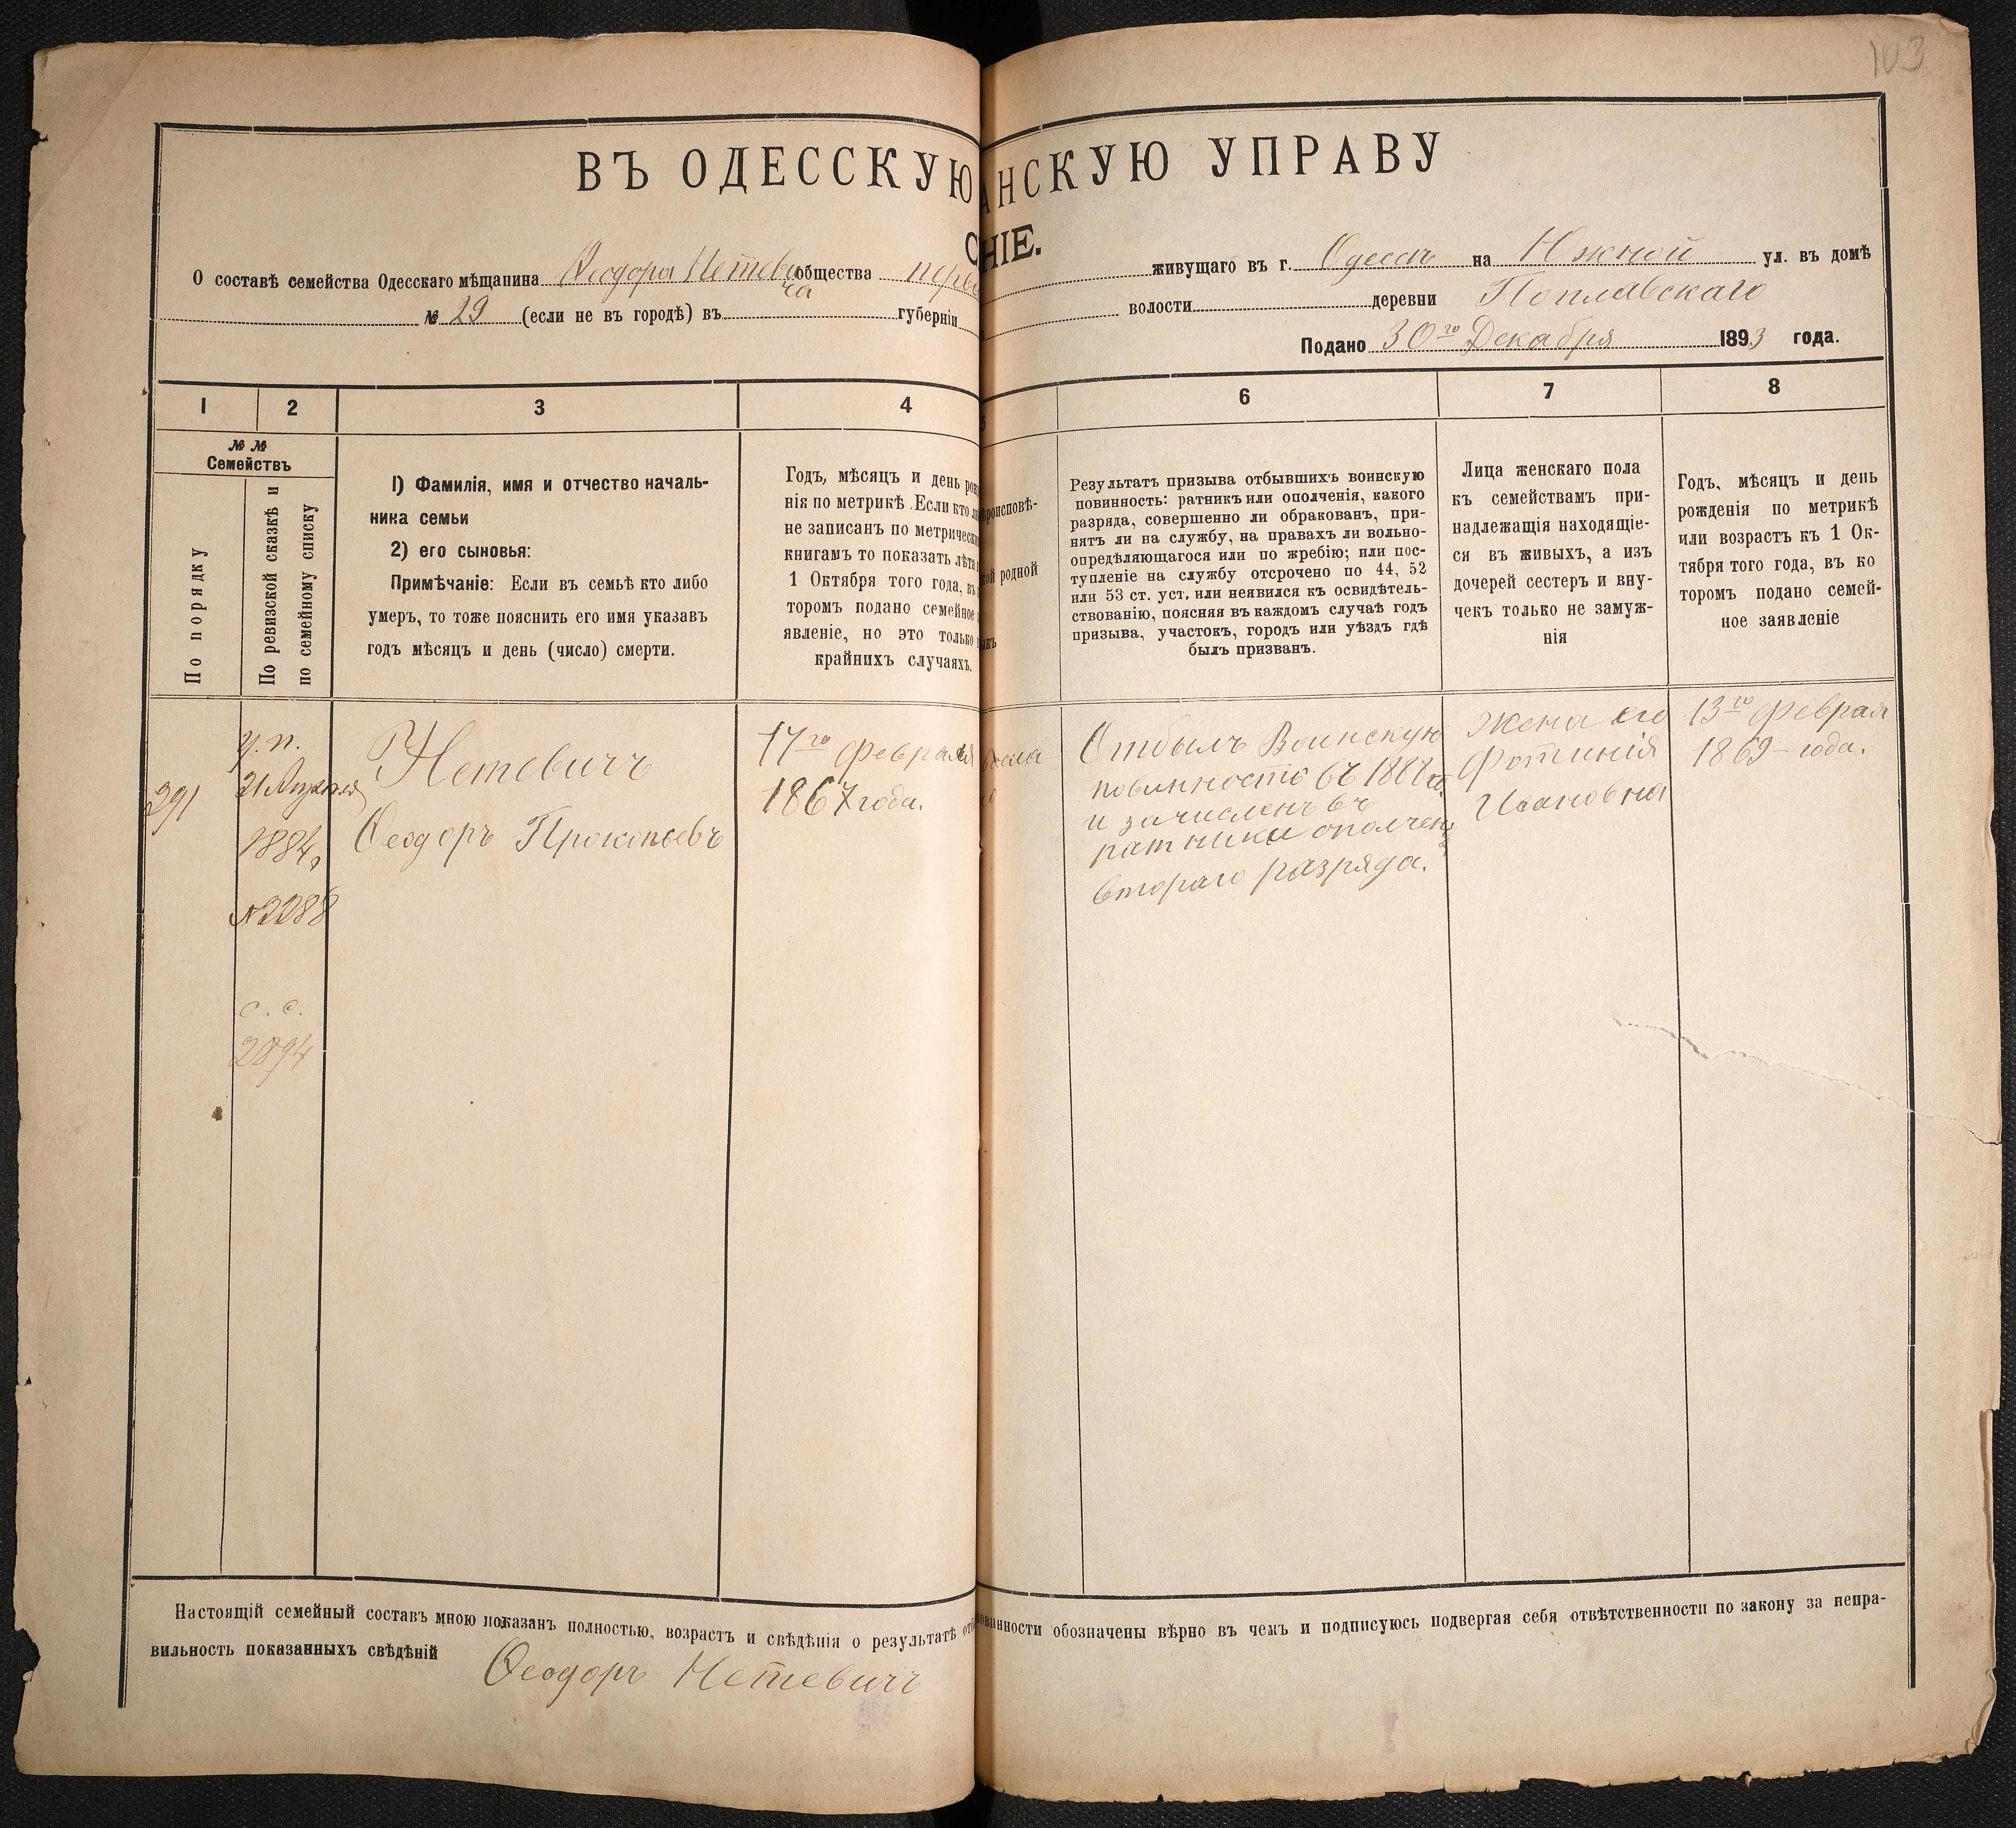 103
ВЪ ОДЕССКУЮ АНСКУЮ УПРАВУ
НІЕ.
О составѣ семейства Одесскаго мѣщанина Ѳеодора Нетевича общества перво живущаго въ г. Одессѣ на Южной ул. въ домѣ
№ 29 (если не въ городѣ) въ губерніи волости деревни Поплавскаго
Подано 30го Декабря 1893 года.
1 2 3 4 5 6 7 8
№ № Семействъ
По порядку
По ревизской сказкѣ и
по семейному списку
1) Фамилія, имя и отчество началь-
ника семьи
2) его сыновья:
Примѣчаніе: Если въ семьѣ кто либо
умеръ, то тоже пояснить его имя указавъ
годъ мѣсяцъ и день (число) смерти.
Годъ, мѣсяцъ и день рож
нія по метрикѣ. Если кто
не записанъ по метрически
книгамъ то показать лѣта
1 Октября того года, въ
торомъ подано семейное
явленіе, но это только
крайнихъ случаяхъ.
роисповѣ-
кой родной
Результатъ призыва отбывшихъ воинскую
повинность: ратникъ или ополченія, какого
разряда, совершенно ли обракованъ, при-
нятъ ли на службу, на правахъ ли вольно-
опредѣляющагося или по жребію; или пос-
тупленіе на службу отсрочено по 44, 52
или 53 ст. уст. или неявился къ освидѣтель-
ствованію, поясняя въ каждомъ случаѣ годъ
призыва, участокъ, городъ или уѣздъ гдѣ
былъ призванъ.
Лица женскаго пола
къ семействамъ при-
надлежащія находящіе-
ся въ живыхъ, а изъ
дочерей сестеръ и вну-
чекъ только не замуж-
нія
Годъ, мѣсяцъ и день
рожденія по метрикѣ
или возрастъ къ 1 Ок-
тября того года, въ ко
торомъ подано семей-
ное заявленіе
291
у. п.
21 Апреля
1884,
№ 2288
с. с.
2894
Нетевичъ
Ѳеодоръ Прокопьевъ
17го февраля
1867 года.
Отбылъ Воинскую
повинность въ 1888
и зачисленъ въ
ратники ополчен
втораго разряда.
Жена его
Фотинія
Ивановна
13го Феврал
1869 года.
Настоящій семейный составъ мною показанъ полностью, возрастъ и свѣдѣнія о результатѣ от повинности обозначены вѣрно въ чемъ и подписуюсь подвергая себя отвѣтственности по закону за непра-
вильность показанныхъ свѣдѣній
Ѳеодоръ Нетевичъ